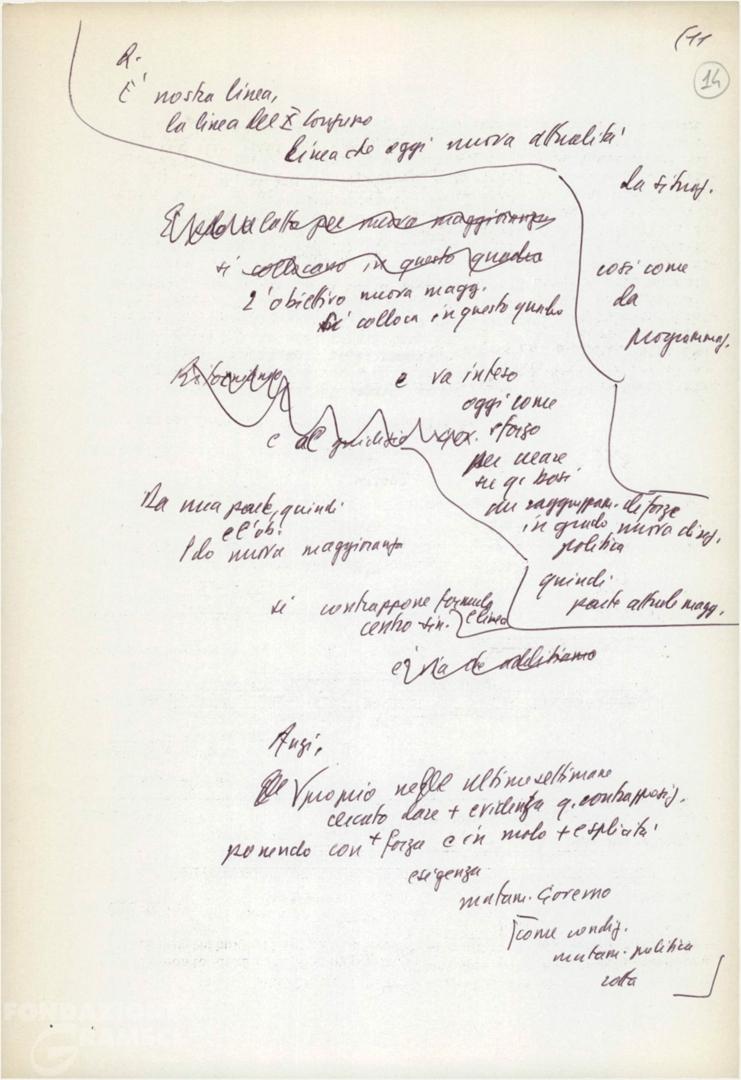 (11
14
R.
È nostra linea,
la linea del X Congresso
linea che oggi nuova attualità
La situaz.
lotta per nuova maggioranza
si collocano in questo quadro
così come
da
programmaz.
L'obiettivo nuova magg.
si colloca in questo quadro
e va inteso
oggi come
sforzo
per creare
le basi
raggruppam. di forze
in grado nuova direz.
politica
e al giudizio
Da una parte, quindi
nuova maggioranza
quindi
parte attuale magg.
si contrappone formula
centro sin. e linea
e via che additiamo
Anzi,
proprio nelle ultime settimane
cercato dare + evidenza q. contrapposiz.
ponendo con + forza e in modo + esplicito
esigenza
mutam. Governo
come condiz.
mutam. politica